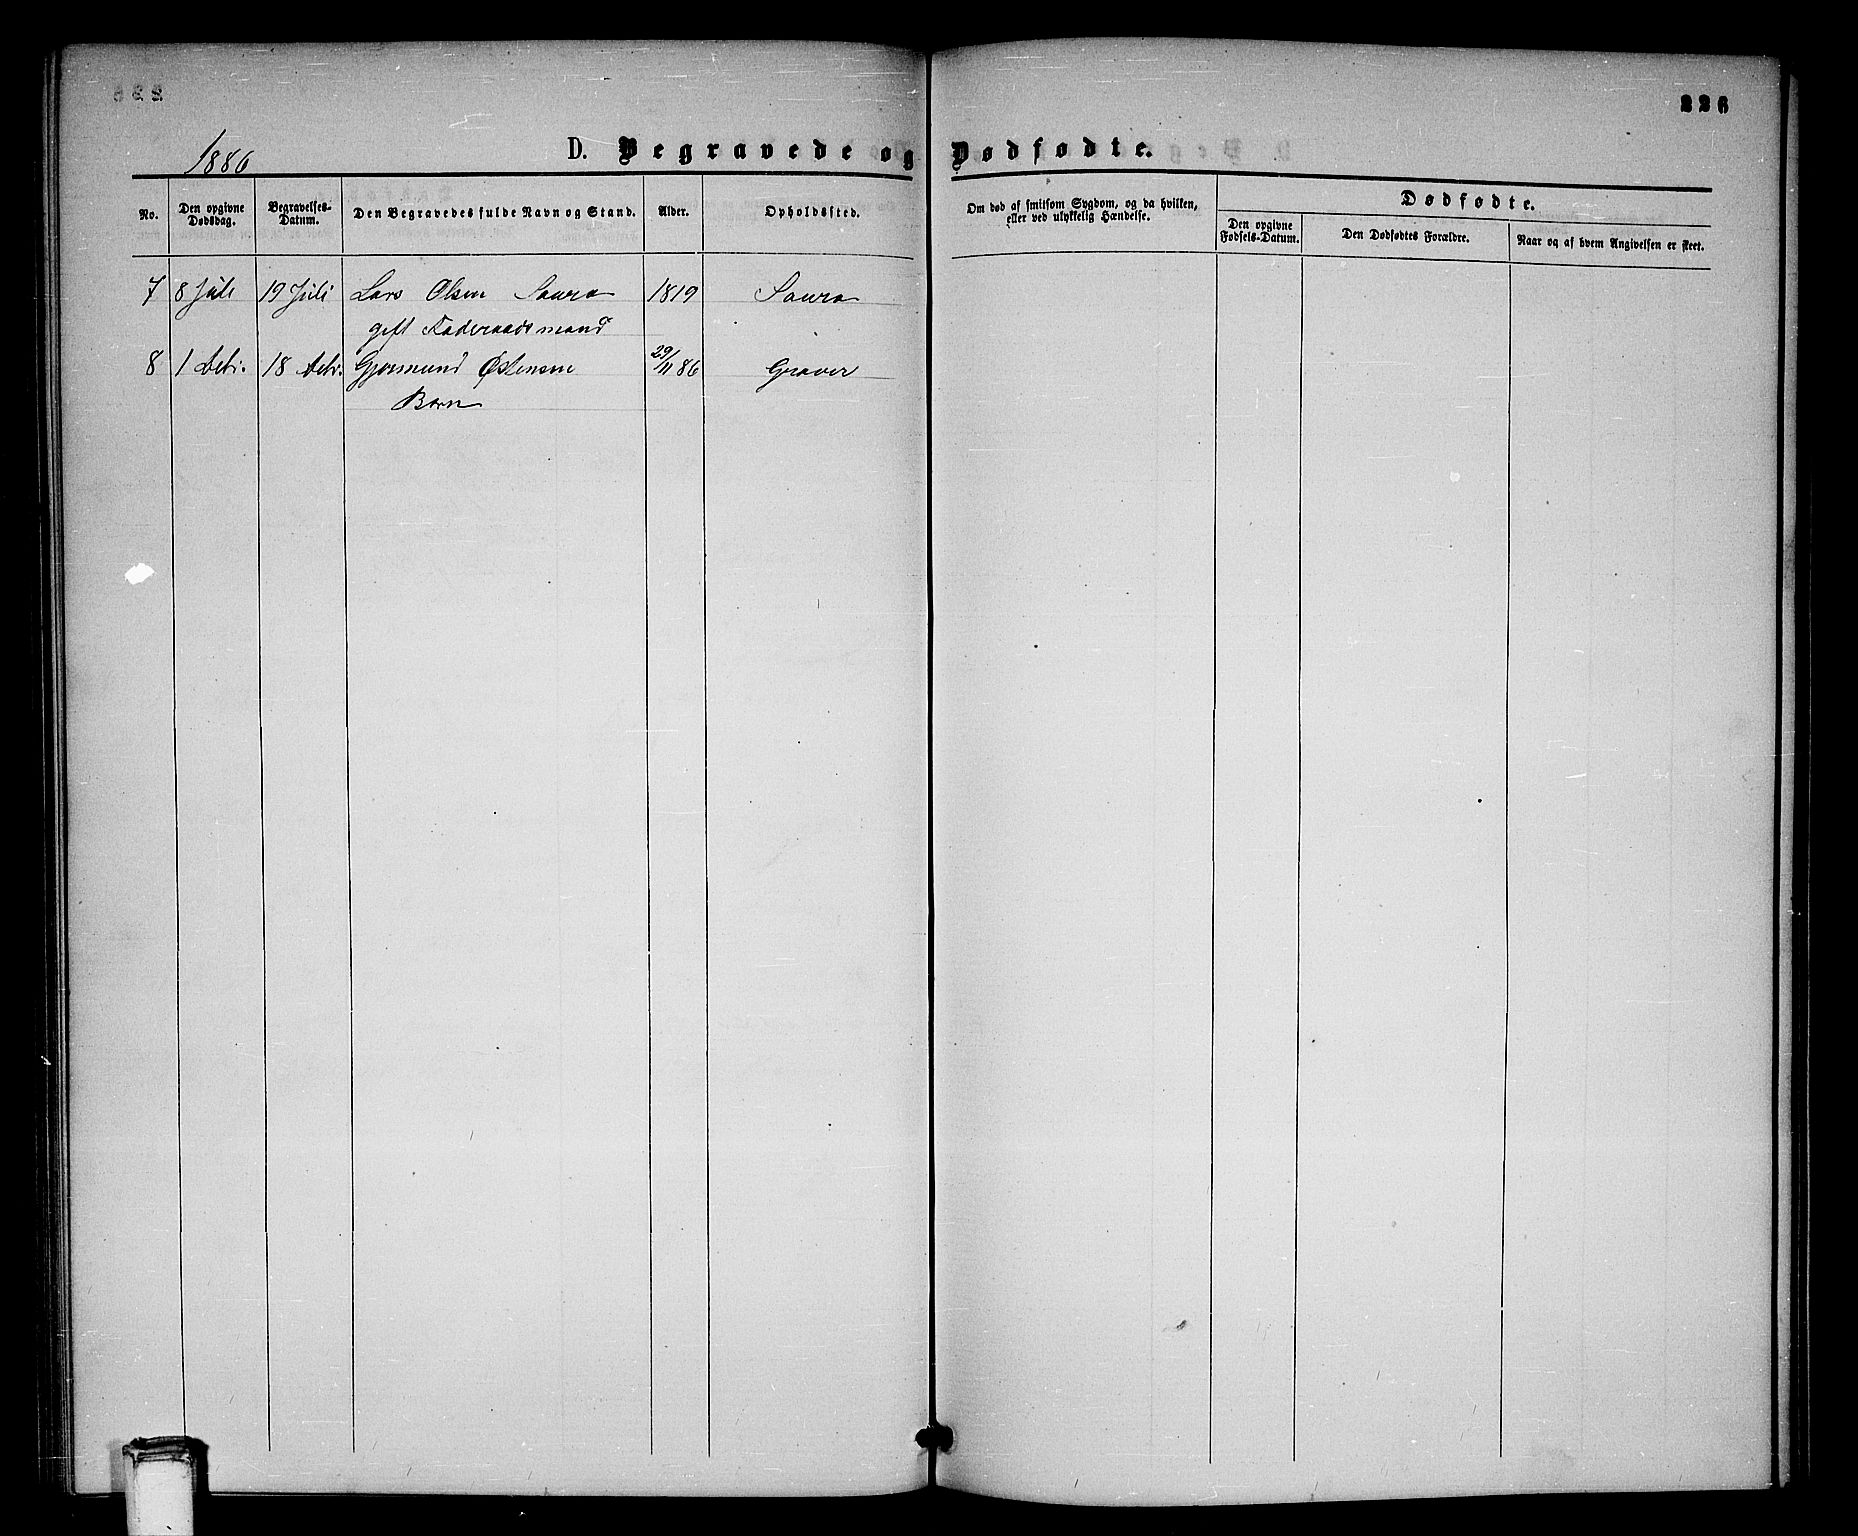 226
1886
D. Begravede og Dødfødte.
No.
Den opgivne Dødsdag.
Begravelses-Datum.
Den Begravedes fulde Navn og Stand.
Alder.
Opholdssted.
Om død af smitsom Sygdom, og da hvilken,
eller ved ulykkelig Hændelse.
Dødfødte.
Den opgivne Fødsels-Datum.
Den Dødfødtes Forældre.
Naar og af hvem Angivelsen er skeet.
7 8 Juli 19 Juli Lars Olsen Saura 1819 Saura
gift Føderaadsmand
8 1 Debr. 18 Debr. Gjermund Østensen 29/11 86 Graver
Barn